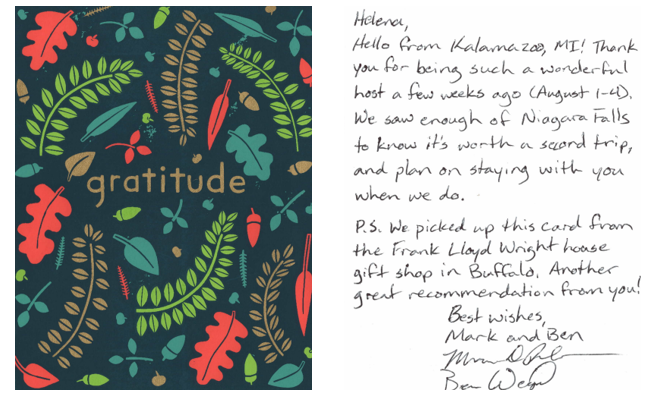 gratitude
Helena,
Hello from Kalamazoo, MI! Thank
you for being such a wonderful
host a few weeks ago (August 1-4).
We saw enough of Niagara Falls
to know it's worth a second trip,
and plan on staying with you
when we do.
P.S. We picked up this card from
the Frank Lloyd Wright house
gift shop in Buffalo. Another
great recommendation from you!
Best wishes,
Mark and Ben
Ben